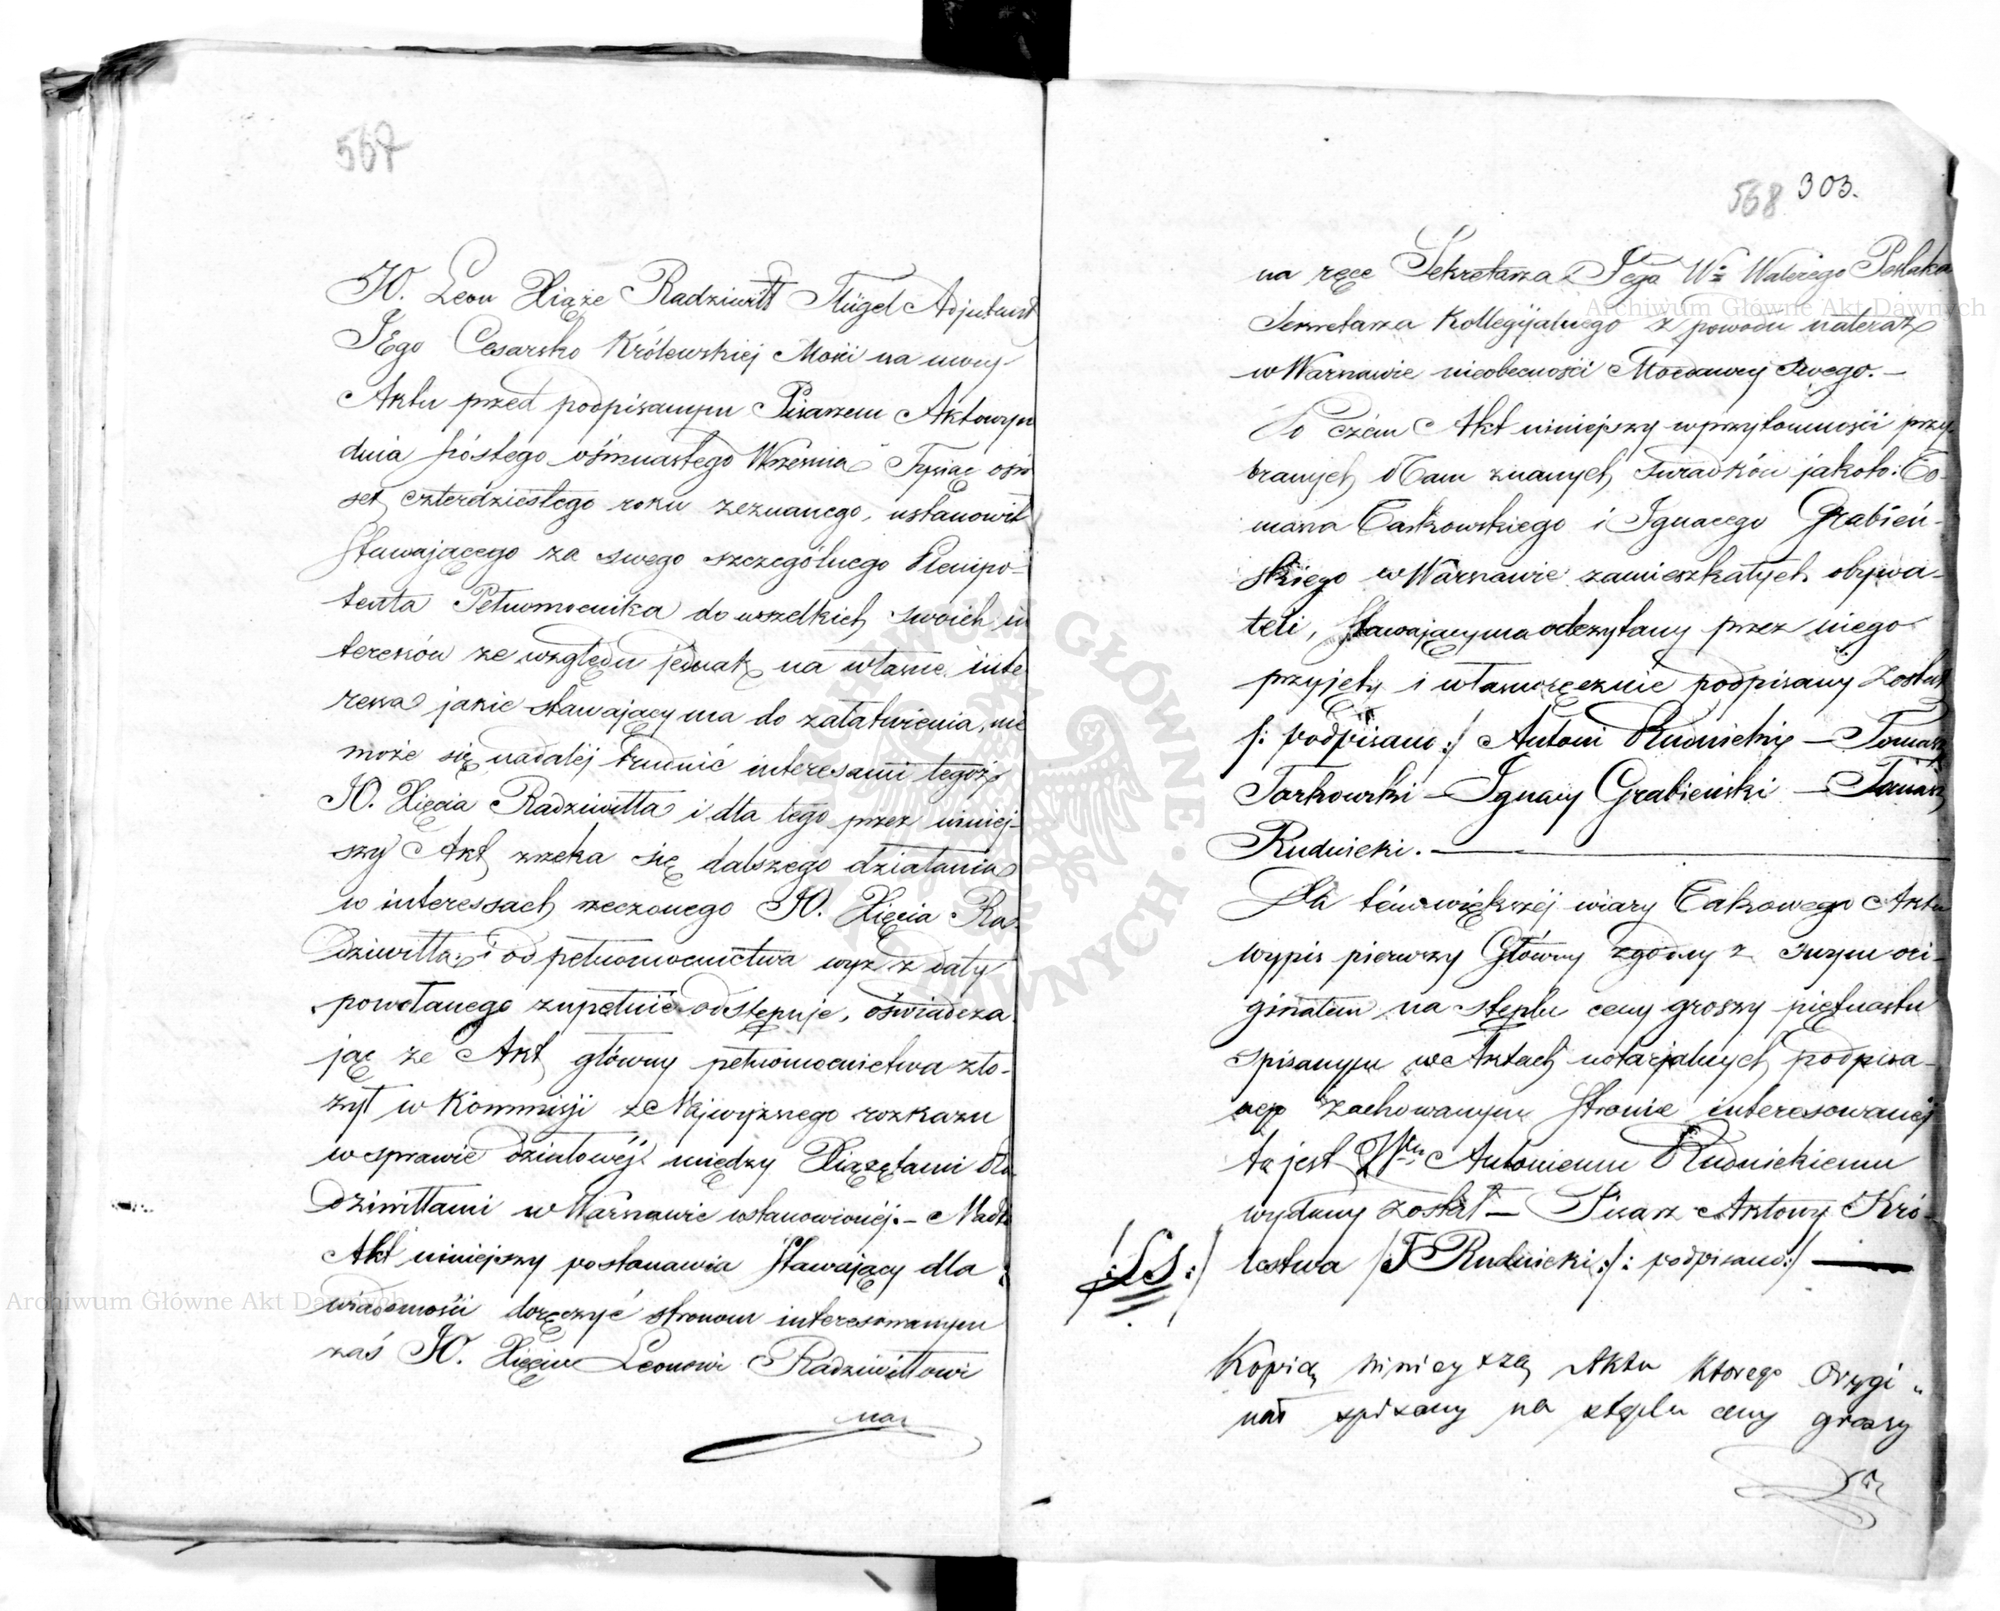 567
JO. Leon Xiąże Radziwiłł Flügel Adjutant
JEgo Cesarsko Królewskiej Mości na mocy
Aktu przed podpisanym Pisarzem Aktowym
dnia szóstego ośmnastego Września Tysiąc ośm
set czterdziestego roku zeznanego, ustanowił
stawającego za swego szczególnego Plenipo-
tenta Pełnomocnika do wszelkich swoich in
teressów ze względu jednak na własne inte
ressa jakie stawający ma do załatwienia, nie
może się nadalej trudnić interesami tegoż
JO. Xięcia Radziwiłła i dla tego przez niniej-
szy Akt zrzeka się dalszego działania
w interessach rzeczonego JO. Xięcia Ra-
dziwiłła i od pełnomocnictwa wyż z daty
powołanego zupełnie odstępuje, oświadcza
jąc że Akt główny pełnomocnictwa zło-
żył w Kommisji z Najwyższego rozkazu
w sprawie działowej między Xiążętami Ra
dziwiłłami w Warszawie ustanowionej. – Nadto
Akt niniejszy postanawia stawający dla
wiadomości doręczyć stronom interesowanym
zaś JO. Xięciu Leonowi Radziwiłłowi
na
568 303.
na ręce Sekretarza Jego Wº Walerego Polaka
Sekretarza Kollegijalnego z powodu nateraz
w Warszawie nieobecności Mocdawcy swego. –
Po czém Akt niniejszy w przytomności przy
branych i Nam znanych świadków jakoto: To-
masza Tarkowskiego i Ignacego Grabień-
skiego w Warszawie zamieszkałych obywa-
teli, stawającemu odczytany przez niego
przyjęty i własnoręcznie podpisany został
/: podpisano :/ Antoni Rudnicki – Tomasz
Tarkowski – Ignacy Grabieński – Tomasz
Rudnicki. –
Dla tém większéj wiary takowego Aktu
wypis pierwszy Główny zgodny z swym ori-
ginałem na stęplu ceny groszy piętnastu
spisanym w Aktach notarjalnych podpisa-
nego zachowanym Stronie interesowanej
to jest Wmu Antoniemu Rudnickiemu
wydany został – Pisarz Aktowy Kró-
/:LS:/ lestwa / T Rudnicki :/: podpisano :/ –
Kopią niniejszą Aktu którego Orygi„
nał spisany na stęplu ceny groszy